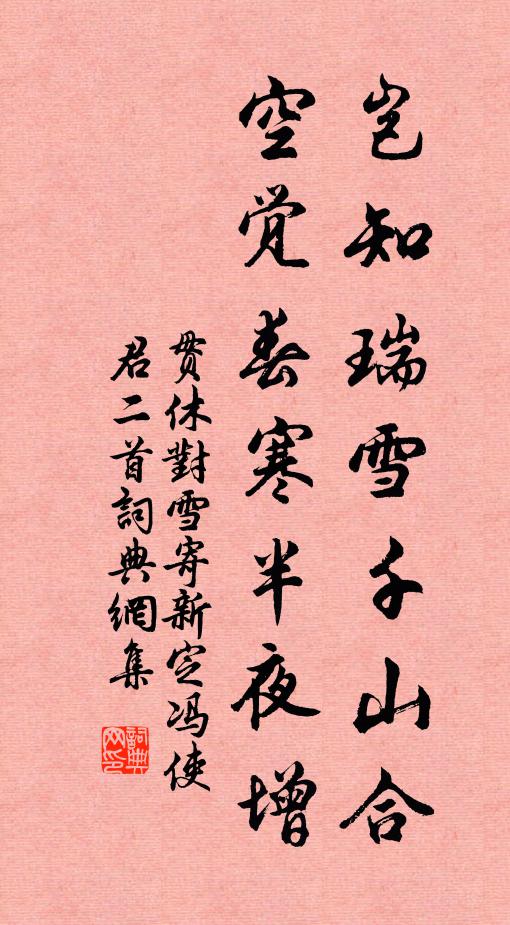 岂知瑞雪千山合
空觉春寒半夜增
贯休對雪寄新定冯使
君二首詞典網集
詞典網印